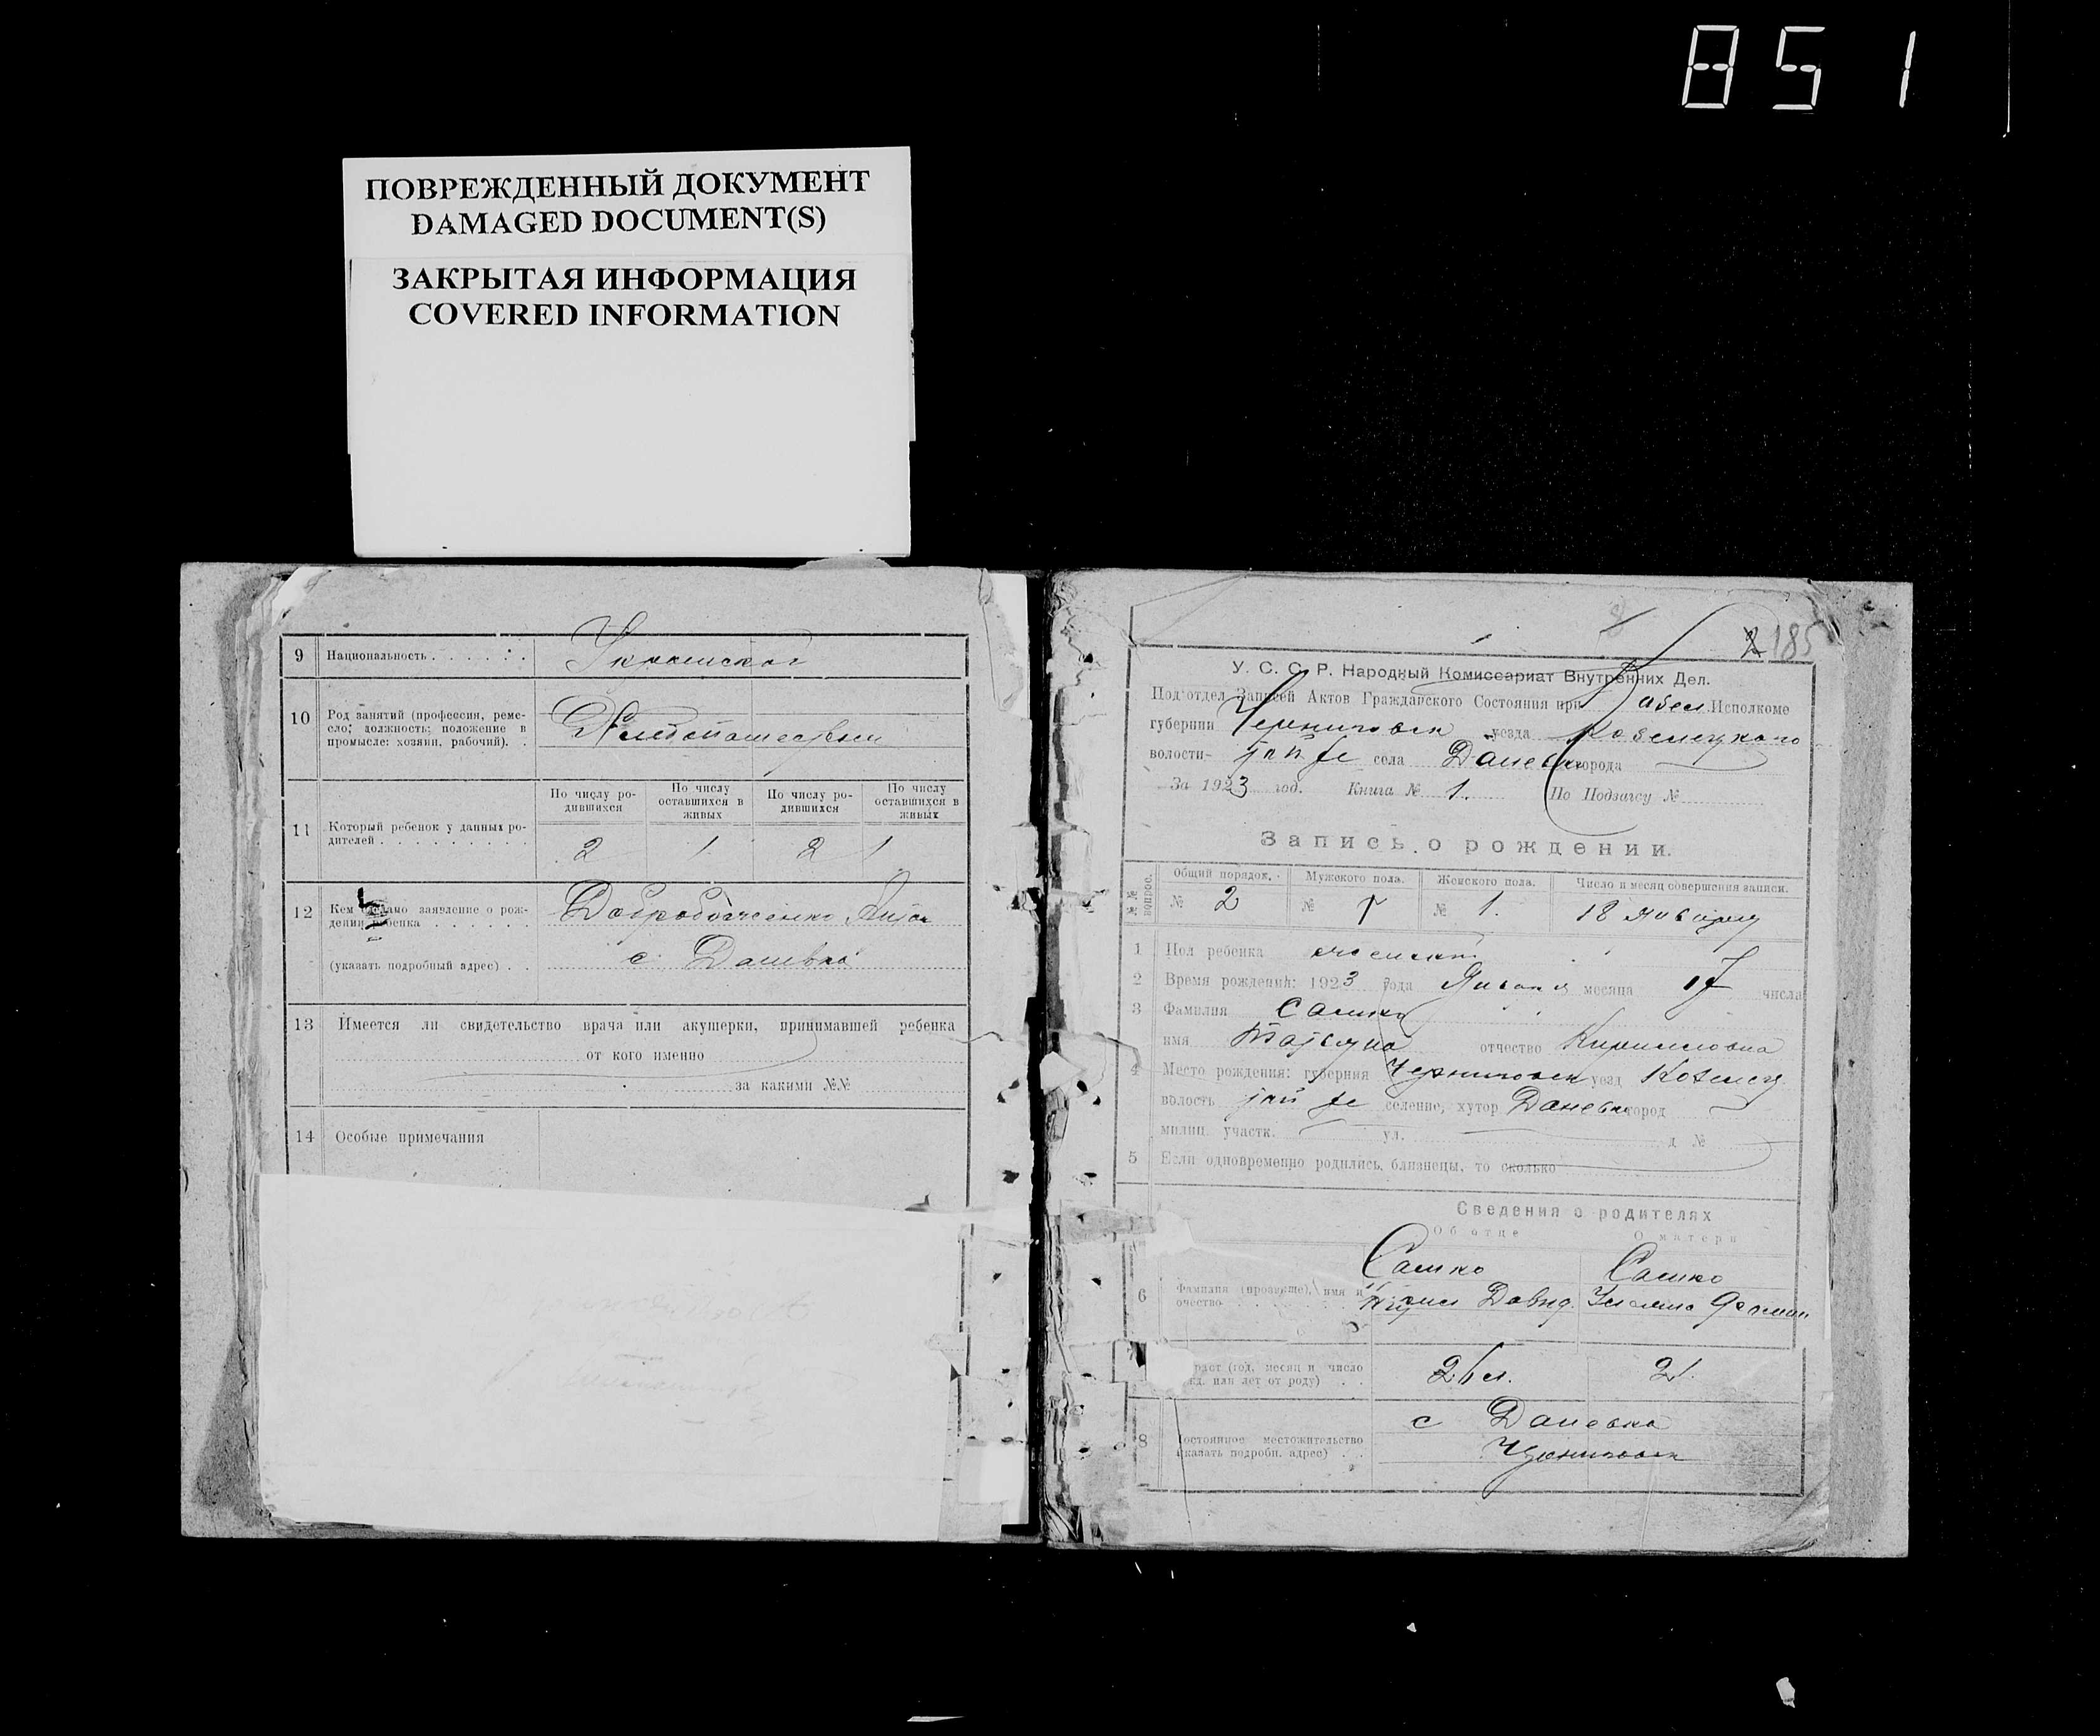 851
ПОВРЕЖДЕННЫЙ ДОКУМЕНТ
DAMAGED DOCUMENT(S)
ЗАКРЫТАЯ ИНФОРМАЦИЯ
COVERED INFORMATION
9 Национальность
10 Род занятий (профессия, ремесло; должность; положение в промысле: хозяин, рабочий).
По числу родившихся
По числу оставшихся в живых
По числу родившихся
По числу оставшихся в живых
11 Который ребенок у данных родителей
2 1 2 1
12 Кем заявление о рождении ребенка
(указать подробный адрес)
с.
13 Имеется ли свидетельство врача или акушерки, принимавшей ребенка
от кого именно
за какими №№
14 Особые примечания
185
У. С. С. Р. Народный Комиссариат Внутренних Дел.
Под'отдел Записей Актов Гражданского Состояния при Исполкоме
губернии Черниговск уезда Козелецкого
волости села Даневка города
За 1923 год. Книга № 1. По Подзагсу №
Запись о рождении.
№№ вопрос.
Общий порядок. Мужского пола. Женского пола. Число и месяц совершения записи.
№ 2 № № 1. 18 января
1 Пол ребенка женский
2 Время рождения: 1923 года января месяца 17 числа
3 Фамилия Сашко
имя Татьяна отчество Кирилловна
4 Место рождения: губерния Черниговск уезд Козелец
волость селение, хутор Даневка город
милиц. участк. ул. д №
5 Если одновременно родились близнецы, то сколько
Сведения о родителях
Об отце О матери
Сашко Сашко
6 Фамилия (прозвище), имя и отчество Давид.
7 (год, месяц и число или лет от роду)
8 Постоянное местожительство (указать подробн. адрес)
с Даневка
Черниговск